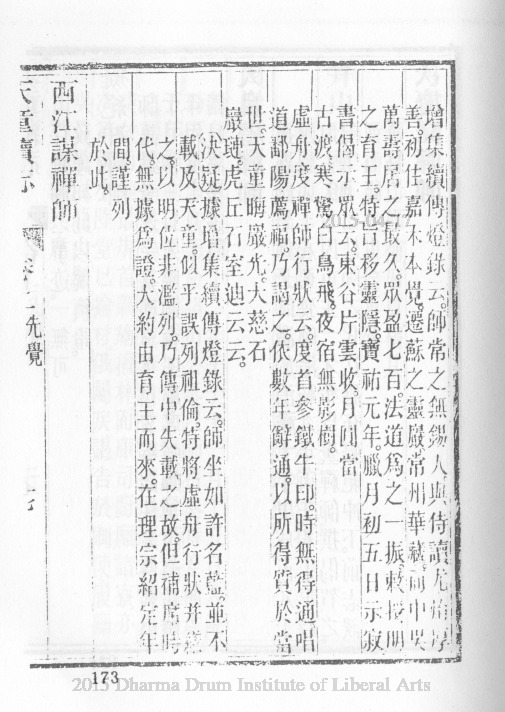 增集續傳燈錄云。師常之無錫人與侍讀尤焴厚
善。初住嘉禾本覺。遷蘇之靈巖。常州華藏。而中吳
萬壽居之最久。眾盈七百。法道為之一振。敕授明
之育王。特旨移靈隱。寶祐元年臘月初五日示寂
書偈示眾云。東谷片雲收。月圓當
古渡。寒鷺白鳥飛。夜宿無影樹。
虛舟度禪師行狀云。度首參鐵牛印。時無得通唱
道鄱陽薦福。乃謁之。依數年辭通。以所得質於當
世。天童晦巖光。大慈石
巖璉。虎丘石室迪云云。
決疑據增集續傳燈錄云。師坐如許名藍。並不
載及天童。似乎誤列祖倫。特將虛舟行狀并
之。以明位非濫列。乃傳中失載之故。但補席時
代。無據為證。大約由育王而來。在理宗紹定年
間。謹列
於此。
西江謀禪師
天童寺續志 卷上 先覺
173
2015 Dharma Drum Institute of Liberal Arts